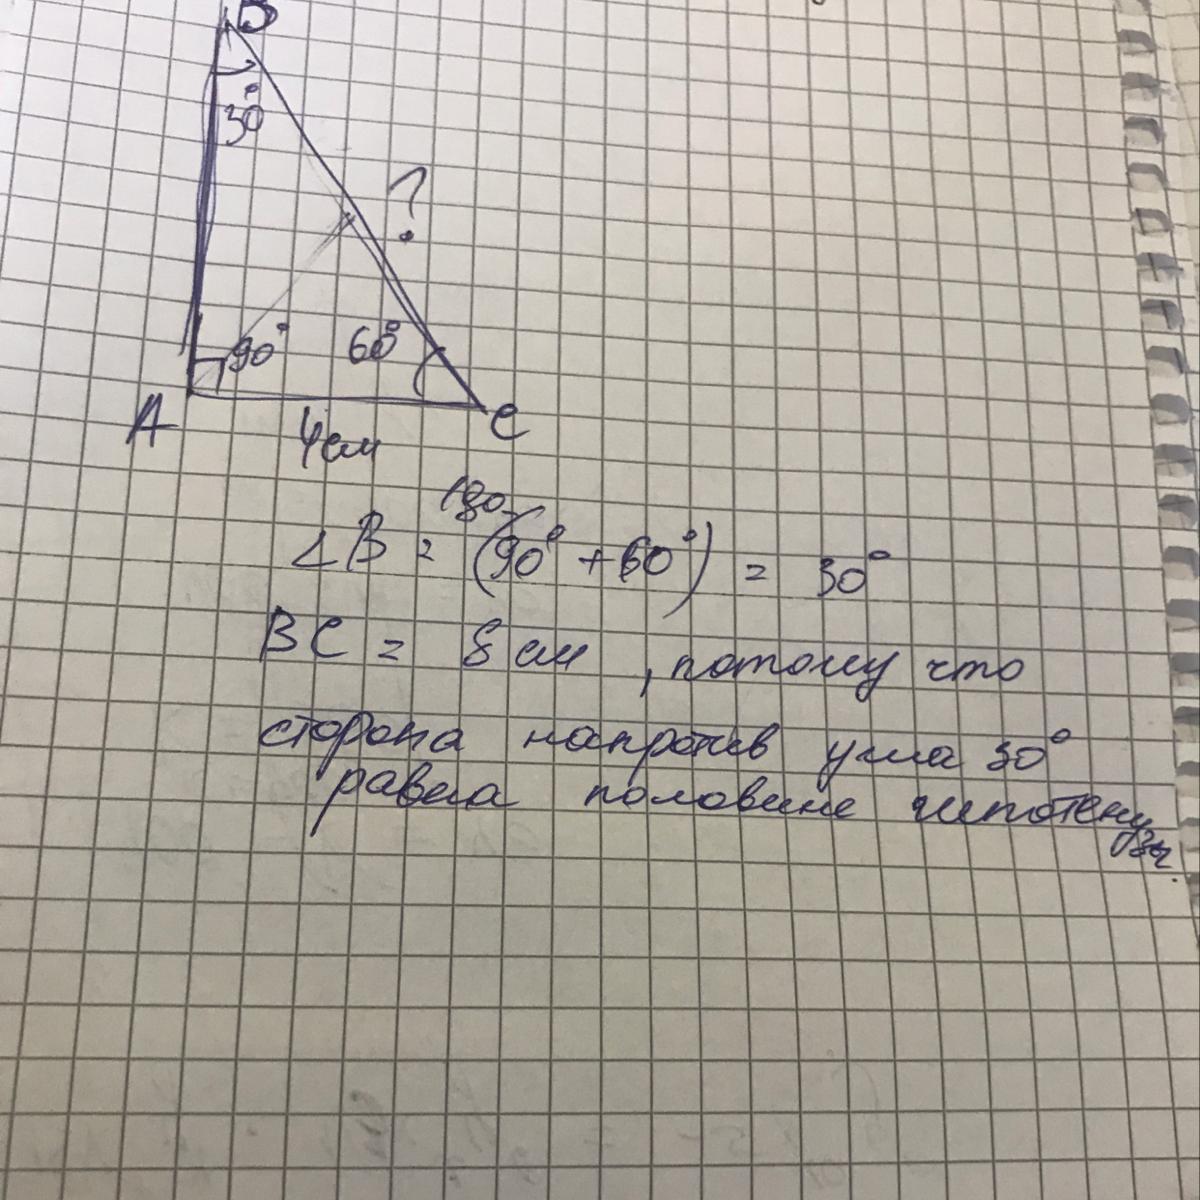 B
30°
?
90° 60°
A
C
4см
∠B = 180-(90° + 60°) = 30°
BC = 8 см, потому что
сторона напротив угла 30°
равна половине гипотенузы.